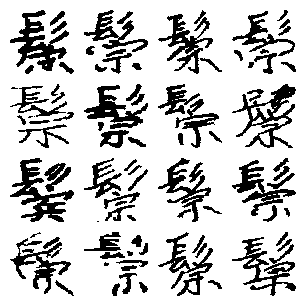 鬃鬃鬃鬃
鬃鬃鬃鬃
鬃鬃鬃鬃
鬃鬃鬃鬃